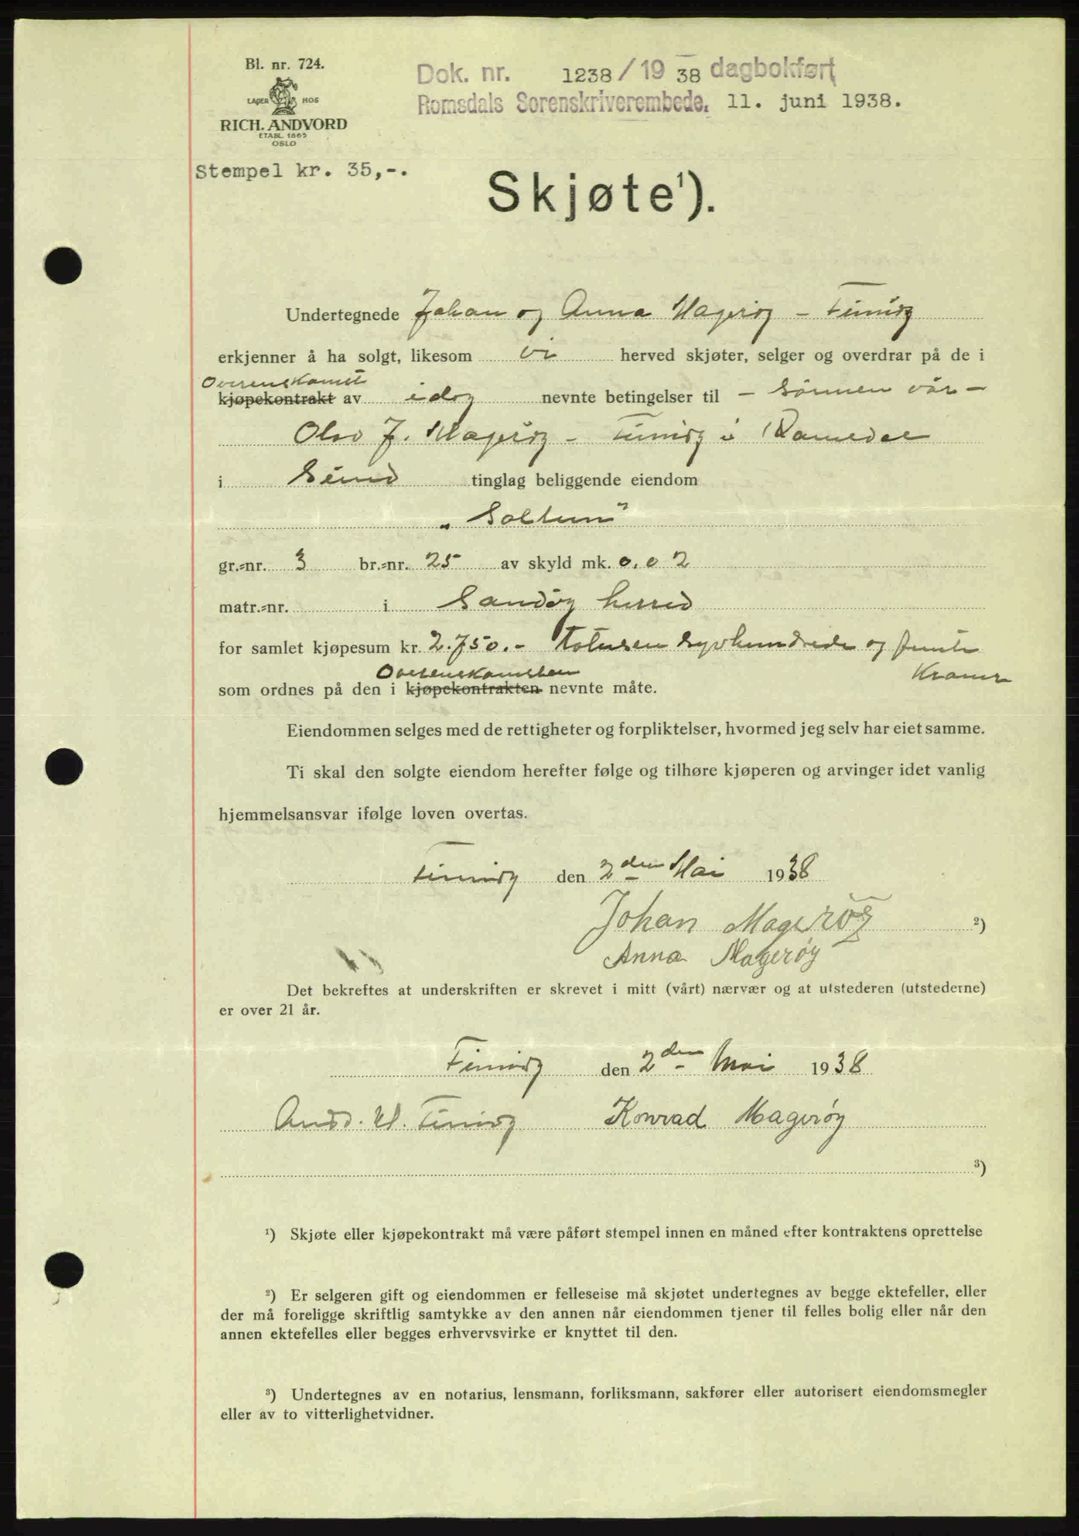 Bl. nr. 724.
LAGER HOS
RICH. ANDVORD
ETABL. 1865
OSLO
Dok. nr. 1238/1938 dagbokført
Romsdals Sorenskriverembede, 11. juni 1938.
Stempel kr. 35,-.
Skjøte¹).
Undertegnede Johan og Anna Magerøy –
erkjenner å ha solgt, likesom vi herved skjøter, selger og overdrar på de i
Overenskomst
kjøpekontrakt av idag nevnte betingelser til – sønnen vår –
Olav J. Magerøy – i Romsdal
i Sund tinglag beliggende eiendom
„Soltun"
gr.-nr. 3 br.-nr. 25 av skyld mk. 0,02
matr.-nr. i Sandøy herred
for samlet kjøpesum kr. 2.750.- totusen syvhundrede og femti
Overenskomsten Kroner
som ordnes på den i kjøpekontrakten nevnte måte.
Eiendommen selges med de rettigheter og forpliktelser, hvormed jeg selv har eiet samme.
Ti skal den solgte eiendom herefter følge og tilhøre kjøperen og arvinger idet vanlig
hjemmelsansvar ifølge loven overtas.
den 2den Mai 1938
Johan Magerøy ²)
Anna Magerøy
Det bekreftes at underskriften er skrevet i mitt (vårt) nærvær og at utstederen (utstederne)
er over 21 år.
den 2den Mai 1938
Konrad Magerøy
³)
¹) Skjøte eller kjøpekontrakt må være påført stempel innen en måned efter kontraktens oprettelse
²) Er selgeren gift og eiendommen er felleseise må skjøtet undertegnes av begge ektefeller, eller
der må foreligge skriftlig samtykke av den annen når eiendommen tjener til felles bolig eller når den
annen ektefelles eller begges erhvervsvirke er knyttet til den.
³) Undertegnes av en notarius, lensmann, forliksmann, sakfører eller autorisert eiendomsmegler
eller av to vitterlighetvidner.